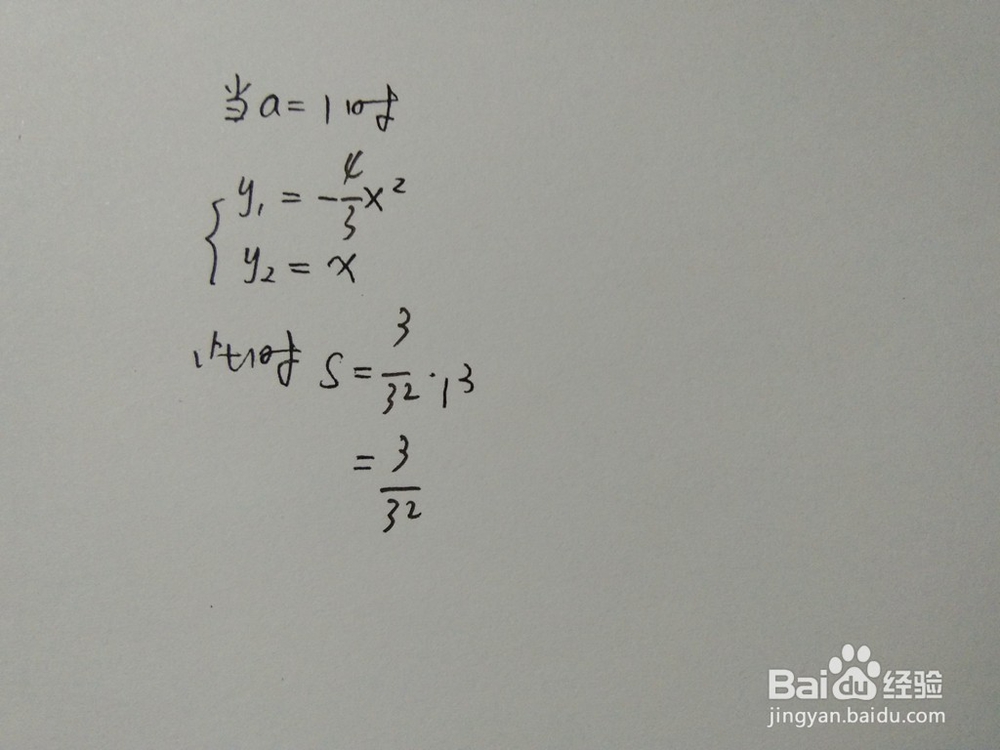 当a=1时
y₁=-4/3x²
y₂=x
此时 S=3/32·1³
=3/32
Baidu经验
jingyan.baidu.com